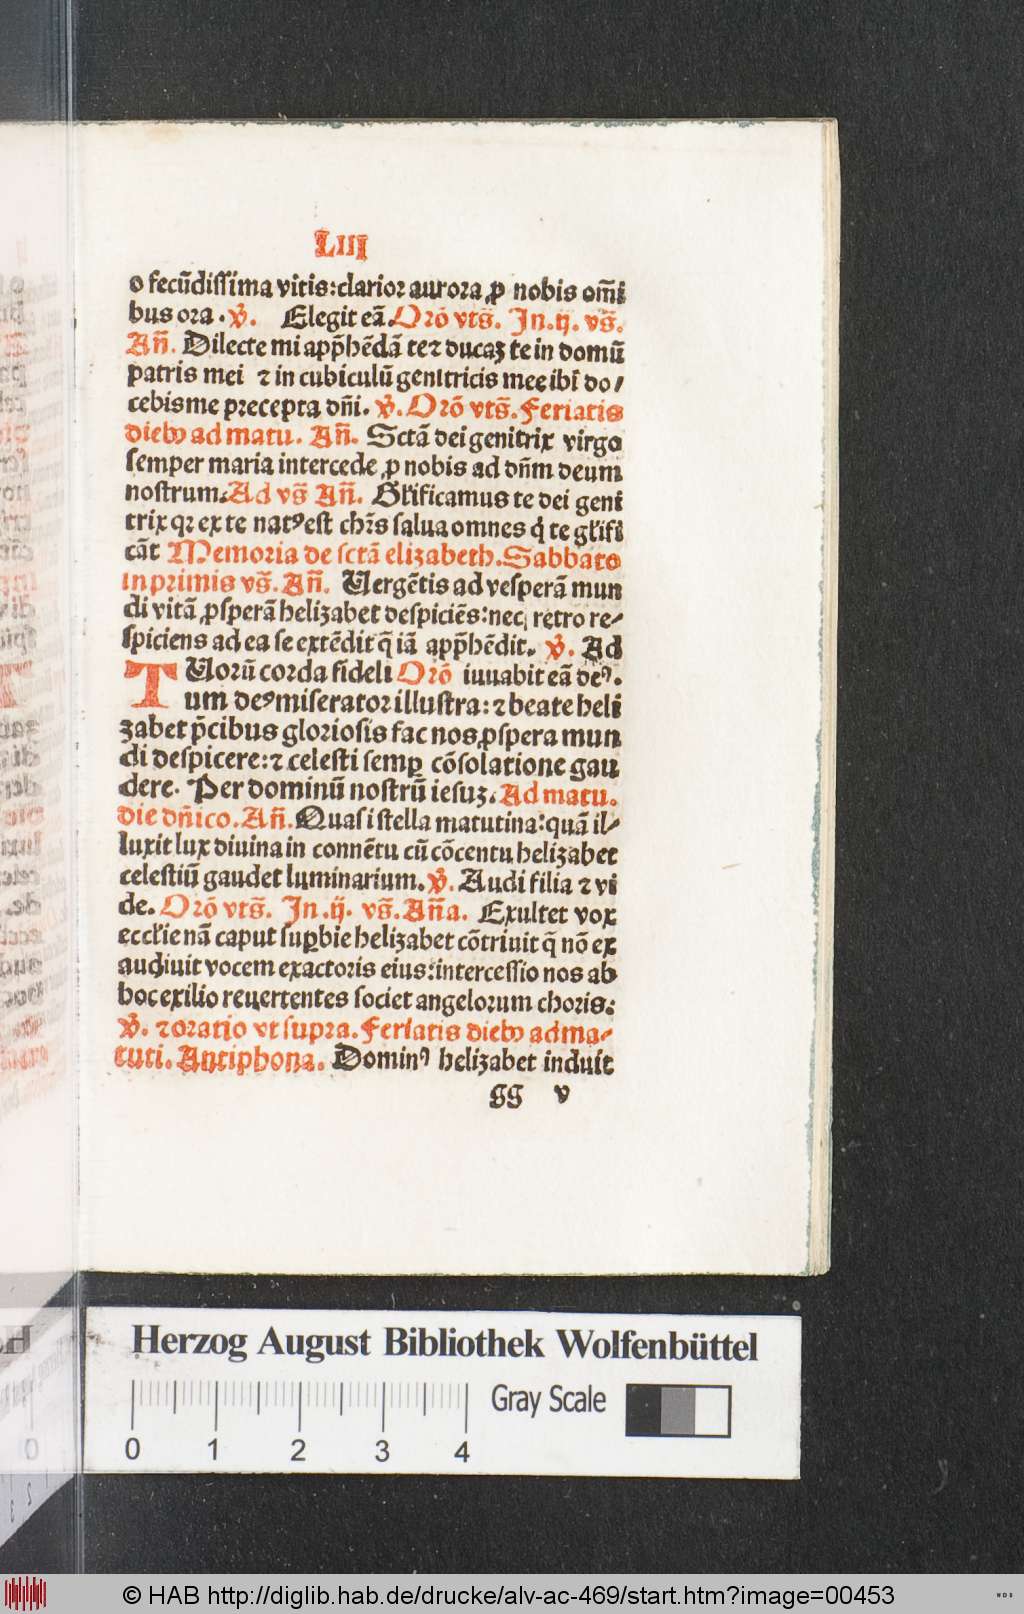 LIII
o fecūdissima vitis:clarior aurora ꝓ nobis om̄i
bus ora . ℣. Elegit eā. Orō vts̄. In.ij. vs̄.
Añ. Dilecte mi app̄hēdā te ⁊ ducaꝫ te in domū
patris mei ⁊ in cubiculū genitricis mee ibi do⸗
cebis me precepta dñi. ℣. Orō vts̄. Feriatis
dieb⁹ ad matu. Añ. Sctā dei genitrix virgo
semper maria intercede ꝓ nobis ad dñm deum
nostrum. Ad vs̄ Añ. Gl̄ificamus te dei geni
trix qꝛ ex te nat⁹ est chr̄s salua omnes q̇ te gl̄ifi
cāt Memoria de sctā elizabeth. Sabbato
in primis vs̄. Añ. Uergētis ad vesperā mun
di vitā ꝓsperā helizabet despiciēs:nec retro re⸗
spiciens ad ea se extēdit q̄ iā app̄hēdit. ℣. Ad
TUorū corda fideli Orō iuuabit eā de⁹.
um de⁹ miserator illustra:⁊ beate heli
zabet p̄cibus gloriosis fac nos ꝓspera mun
di despicere:⁊ celesti semꝑ cōsolatione gau
dere. Per dominū nostrū iesuꝫ. Ad matu.
die dñico. Añ. Quasi stella matutina:quā il⸗
luxit lux diuina in connētu cū cōcentu helizabet
celestiū gaudet luminarium. ℣. Audi filia ⁊ vi
de. Orō vts̄. In .ij. vs̄. Aña. Exultet vox
eccl̄ie nā caput suꝑbie helizabet cōtriuit q̄ nō ex
audiuit vocem exactoris eius:intercessio nos ab
hoc exilio reuertentes societ angelorum choris:
℣. ⁊ oratio vt supra. Feriatis dieb⁹ ad ma⸗
tuti. Antiphona. Domin⁹ helizabet induit
gg v
Herzog August Bibliothek Wolfenbüttel
Gray Scale
0 1 2 3 4
© HAB http://diglib.hab.de/drucke/alv-ac-469/start.htm?image=00453